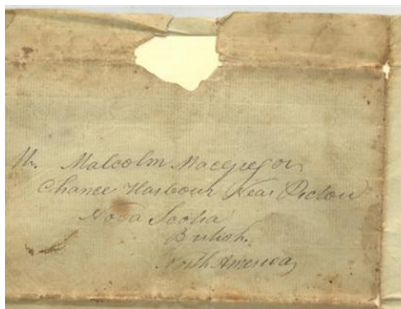 Mr. Malcolm Macgregor
Chance Harbour Near Pictou
Nova Scotia
British
North America